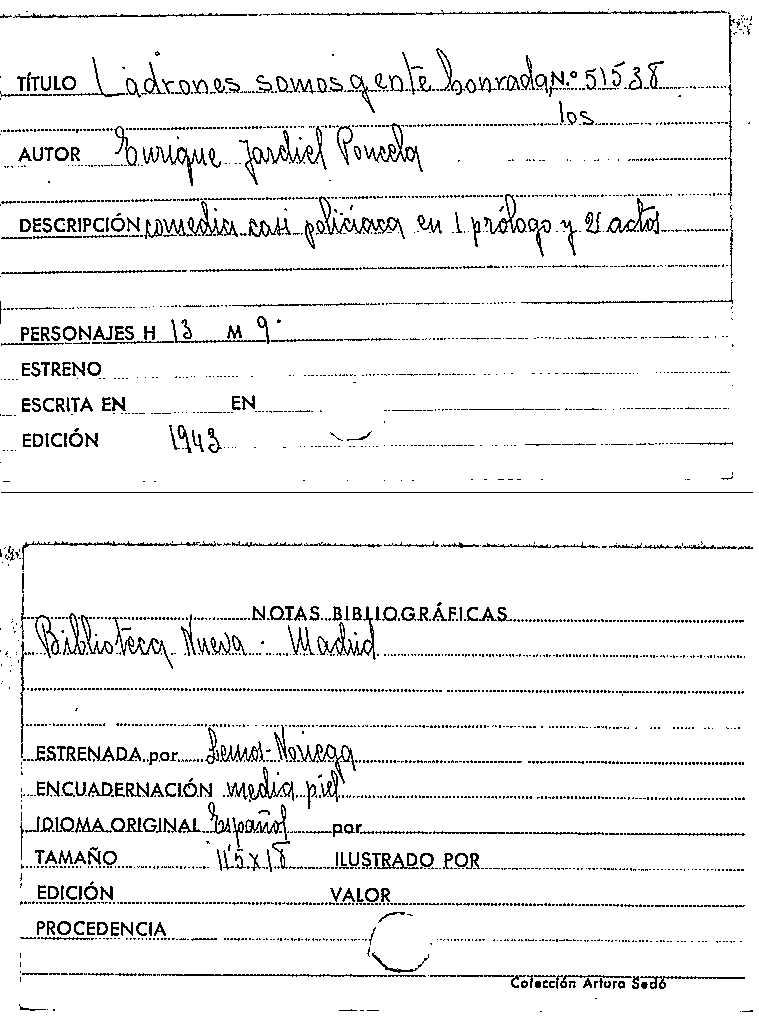 TÍTULO Ladrones somos gente honrada, N.º 51538
los
AUTOR Enrique Jardiel Poncela
DESCRIPCIÓN comedia casi policíaca en 1 prólogo y 2 actos
PERSONAJES H 13 M 9
ESTRENO
ESCRITA EN EN
EDICIÓN 1943
NOTAS BIBLIOGRÁFICAS
Biblioteca Nueva - Madrid
ESTRENADA por Lemos-Noriega
ENCUADERNACIÓN media piel
IDIOMA ORIGINAL Español por
TAMAÑO 11'5 x 18 ILUSTRADO POR
EDICIÓN VALOR
PROCEDENCIA
Colección Arturo Sedó